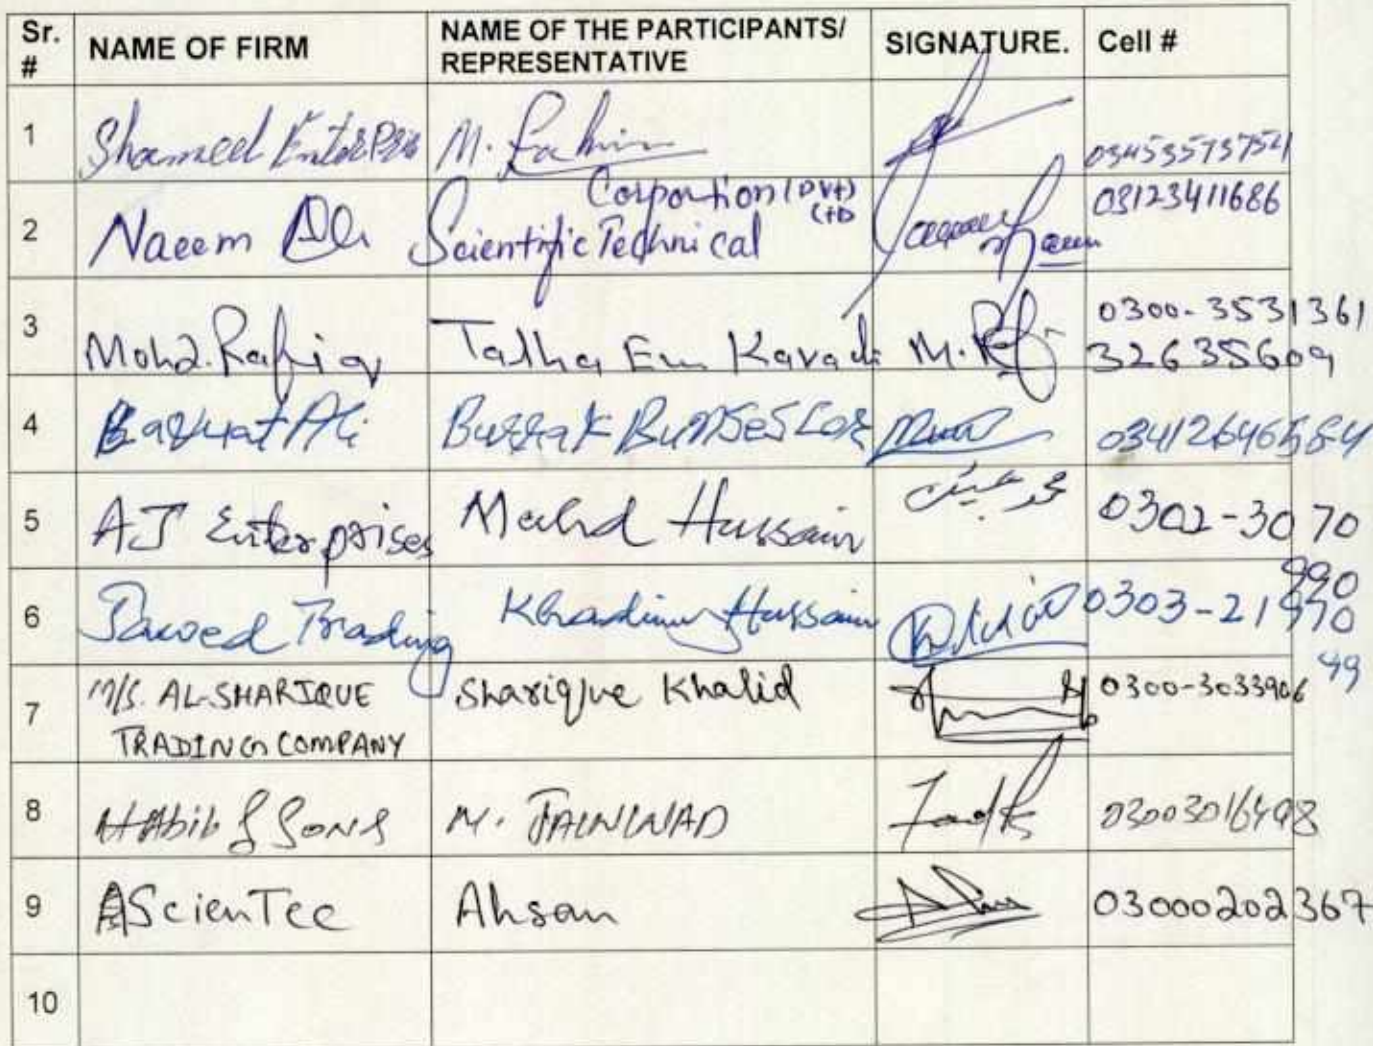 Sr. # NAME OF FIRM NAME OF THE PARTICIPANTS/ REPRESENTATIVE SIGNATURE. Cell #
1 Shameel EnterPris M. Rahim
2 Naeem Ali Scientific Technical Corportion (Pvt) Ltd 03123411686
3 Mohd. Rafiq Talha Em Kavach M. Rafi 0300-3531361
32635609
4 Barkat Ali 03412646584
5 AJ Enterprises Mahd Hussain 0302-3070
990
6 Jawed Trading Khadim Hussain 0303-21970
99
7 M/S. AL-SHARIQUE Sharique Khalid 0300-3033906
TRADING COMPANY
8 Habib & Sons M. 03003016498
9 AScienTec Ahsan 03000202367
10